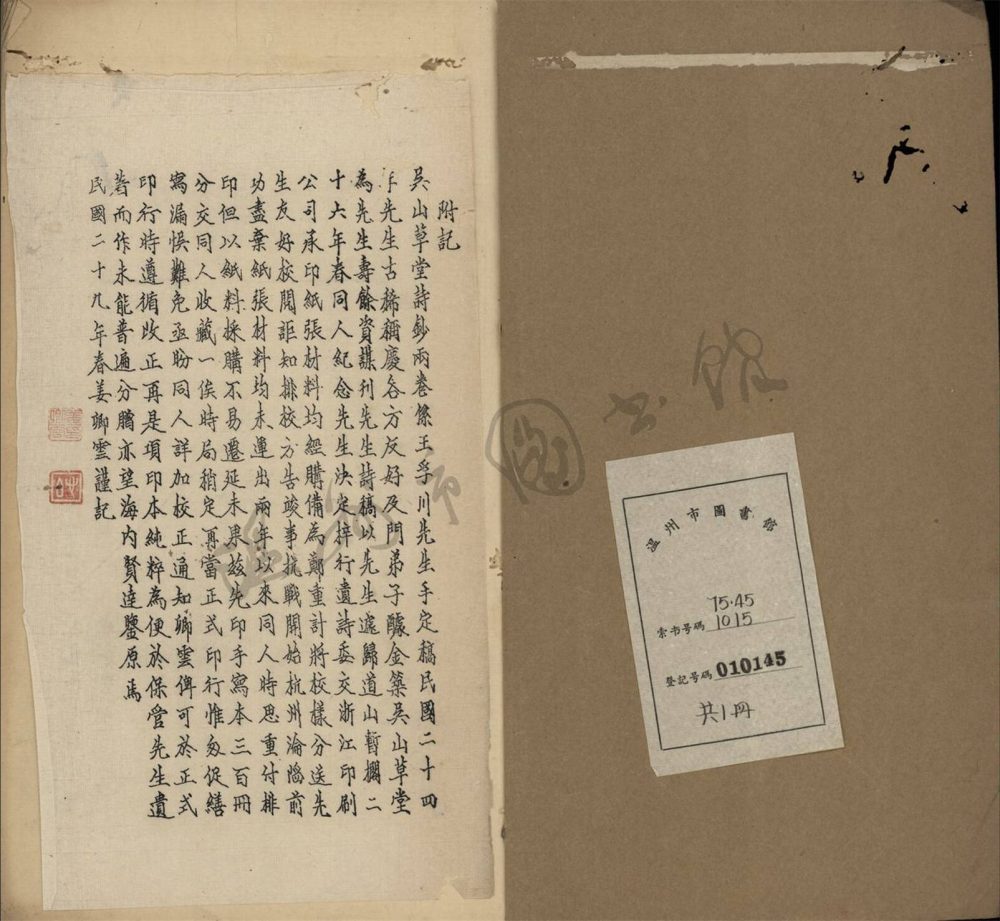 附記
吳山草堂詩鈔兩卷係王孚川先生手定稿民國二十四
年先生古稀稱慶各方友好及門弟子醵金築吳山草堂
為先生壽餘資謀刊先生詩稿以先生遽歸道山暫擱二
十六年春同人紀念先生決定梓行遺詩委交浙江印刷
公司承印紙張材料均經購備為鄭重計將校樣分送先
生友好校閱詎知排校方告竣事抗戰開始杭州淪陷前
功盡棄紙張材料均未運出兩年以來同人時思重付排
印但以紙料採購不易遷延未果茲先印手寫本三百冊
分交同人收藏一俟時局稍定再當正式印行惟匆促繕
寫漏悞難免亟盼同人詳加校正通知卿雲俾可於正式
印行時遵循改正再是項印本純粹為便於保管先生遺
著而作未能普遍分贈亦望海內賢達鑒原焉
民國二十九年春姜卿雲謹記
溫州市圖書館
75.45
索书号碼 1015
登記号碼 010145
共1册
温州市图书馆